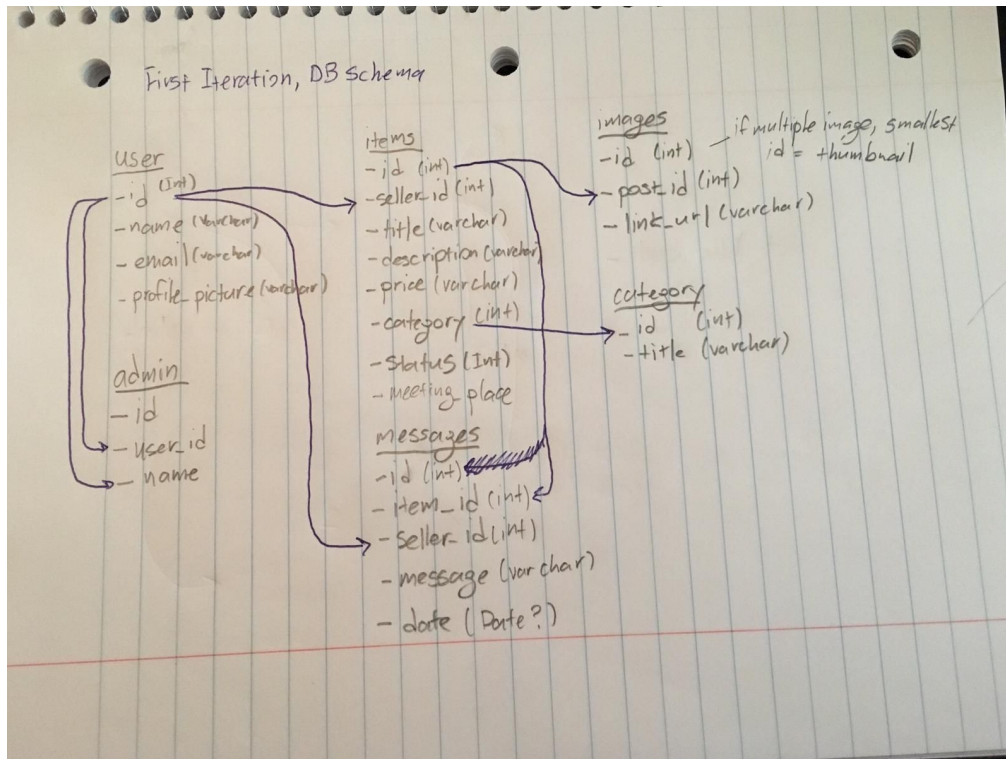 First Iteration, DB Schema
user
- id (Int)
- name (Varchar)
- email (varchar)
- profile_picture (varchar)
admin
- id
- user_id
- name
items
- id (int)
- seller_id (int)
- title (varchar)
- description (varchar)
- price (varchar)
- category (int)
- Status (Int)
- meeting_place
messages
- id (int)
- item_id (int)
- seller_id (int)
- message (varchar)
- date (Date?)
images
- id (int)
- post_id (int)
- link_url (varchar)
if multiple image, smallest
id = thumbnail
category
- id (int)
- title (varchar)